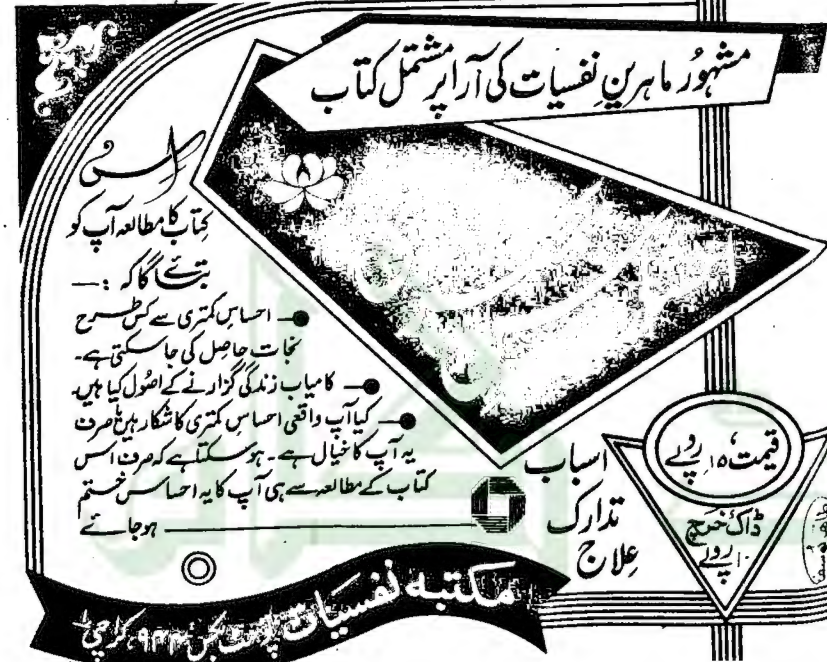 مشہور ماہرینِ نفسیات کی آرا پر مشتمل کتاب
اس
کتاب کا مطالعہ آپ کو
بتائے گا کہ :—
●— احساسِ کمتری سے کس طرح
نجات حاصل کی جا سکتی ہے۔
●— کامیاب زندگی گزارنے کے اصُول کیا ہیں۔
●— کیا آپ واقعی احساسِ کمتری کا شکار ہیں یا صرف
یہ آپ کا خیال ہے۔ ہوسکتا ہے کہ صرف اس
کتاب کے مطالعہ سے ہی آپ کا یہ احساس ختم
ہو جائے
اسباب
تدارک
علاج
قیمت، ۱۵ روپے
ڈاک خرچ
۱۰ روپے
مکتبہ نفسیات پوسٹ بکس ۹۴۴ کراچی ۱